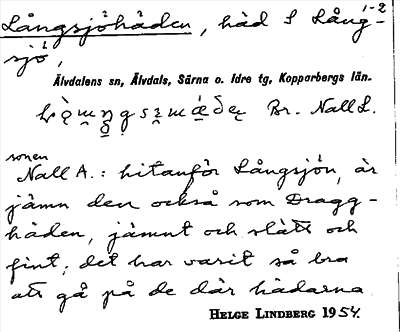 1-2
Långsjöhåden, håd S Lång-
sjö,
Älvdalens sn, Älvdals, Särna o. Idre tg, Kopparbergs län.
Br. Nall L.
sonen
Nall A.: hitanför Långsjön, är
jämn den också som Dragg-
håden, jämnt och slätt och
fint; det har varit så bra
att gå på de där hådarna
HELGE LINDBERG 1954.